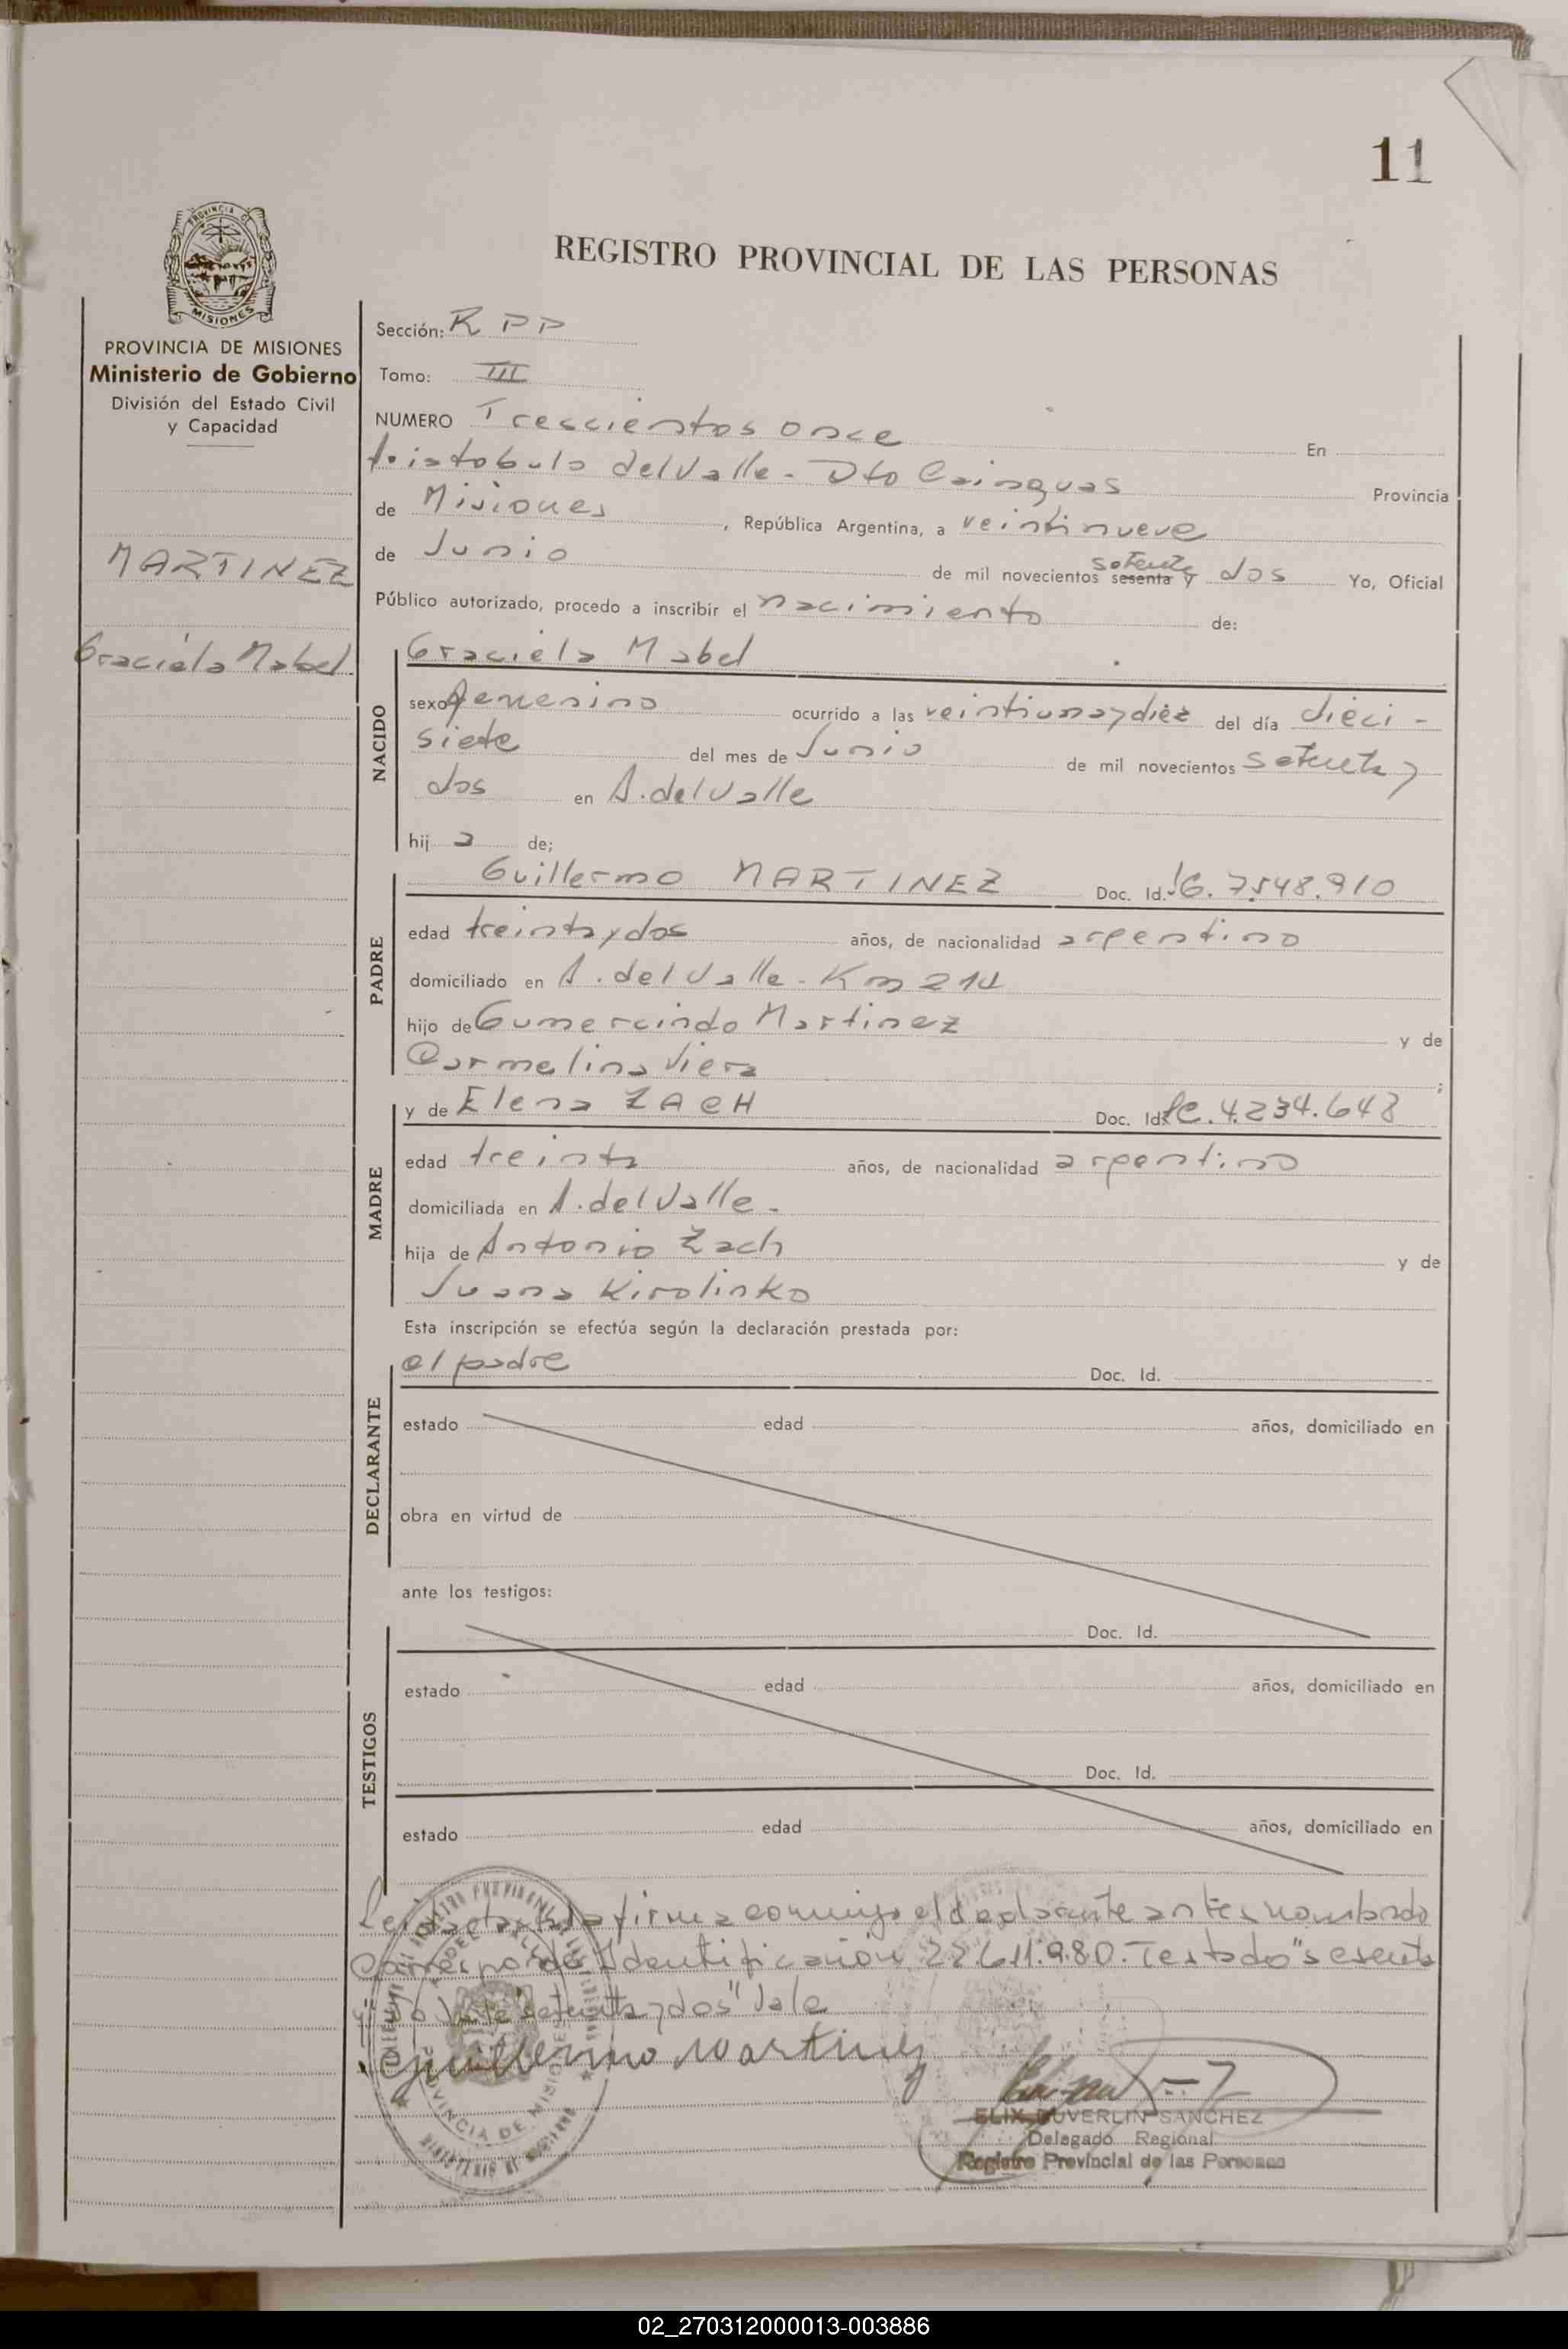 11
REGISTRO PROVINCIAL DE LAS PERSONAS
PROVINCIA DE MISIONES
Ministerio de Gobierno
División del Estado Civil
y Capacidad
MARTINEZ
Graciela Mabel
Sección: R P P
Tomo: III
NUMERO Trescientos once En
Aristobulo del Valle - Dto Cainguas Provincia
de Misiones, República Argentina, a veintinueve
setenta
de Junio de mil novecientos sesenta y dos Yo, Oficial
Público autorizado, procedo a inscribir el nacimiento de:
NACIDO
Graciela Mabel
sexo femenino ocurrido a las veintiuna y diez del día dieci-
siete del mes de Junio de mil novecientos setenta y
dos en A. del Valle
hij a de;
PADRE
Guillermo MARTINEZ Doc. Id. 7.548.910
edad treinta y dos años, de nacionalidad argentino
domiciliado en A. del Valle - Km 214
hijo de Gumercindo Martinez y de
Carmelina Viera ;
MADRE
y de Elena ZACH Doc. Id. LC. 4.234.648
edad treinta años, de nacionalidad argentino
domiciliada en A. del Valle -
hija de Antonio Zach y de
Juana Kirolinko
Esta inscripción se efectúa según la declaración prestada por:
DECLARANTE
el padre Doc. Id.
estado edad años, domiciliado en
obra en virtud de
ante los testigos:
TESTIGOS
Doc. Id.
estado edad años, domiciliado en
Doc. Id.
estado edad años, domiciliado en
Leida el acta la firma conmigo el declarante antes nombrado
Corresponde Identificación 22.611.980. Testado "sesenta
setenta y dos" Vale
Guillermo Martinez
ELIX DUVERLIN SANCHEZ
Delegado Regional
Registro Provincial de las Personas
02_270312000013-003886